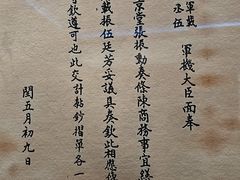 軍機大臣面奉
京堂張振勳奏條陳商務事宜繕
載振伍廷芳妥議具奏欽此相應傳
欽遵可也此交計黏鈔摺單各一
閏五月初九日